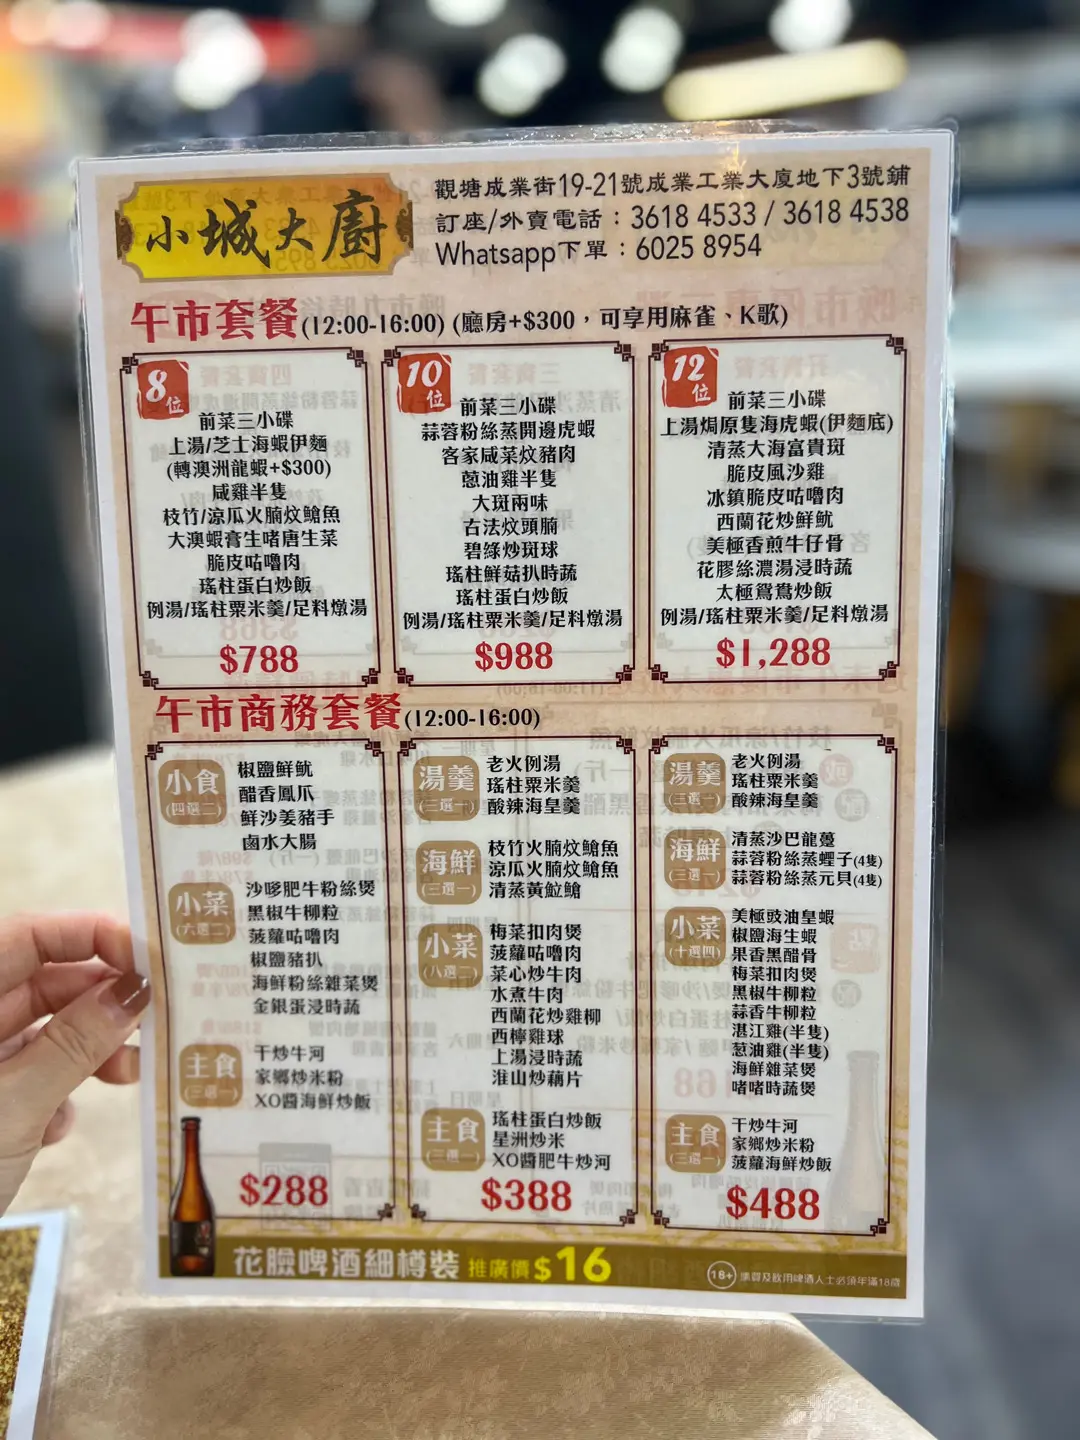 小城大廚
觀塘成業街19-21號成業工業大廈地下3號鋪
訂座/外賣電話：3618 4533 / 3618 4538
Whatsapp下單：6025 8954
午市套餐(12:00-16:00) (廳房+$300，可享用麻雀、K歌)
8位
前菜三小碟
上湯/芝士海蝦伊麵
(轉澳洲龍蝦+$300)
咸雞半隻
枝竹/涼瓜火腩炆鯰魚
大澳蝦膏生啫唐生菜
脆皮咕嚕肉
瑤柱蛋白炒飯
例湯/瑤柱粟米羹/足料燉湯
$788
10位
前菜三小碟
蒜蓉粉絲蒸開邊虎蝦
客家咸菜炆豬肉
蔥油雞半隻
大斑兩味
古法炆頭腩
碧綠炒斑球
瑤柱鮮菇扒時蔬
瑤柱蛋白炒飯
例湯/瑤柱粟米羹/足料燉湯
$988
12位
前菜三小碟
上湯焗原隻海虎蝦(伊麵底)
清蒸大海富貴斑
脆皮風沙雞
冰鎮脆皮咕嚕肉
西蘭花炒鮮魷
美極香煎牛仔骨
花膠絲濃湯浸時蔬
太極鴛鴦炒飯
例湯/瑤柱粟米羹/足料燉湯
$1,288
午市商務套餐(12:00-16:00)
小食
(四選二)
椒鹽鮮魷
醋香鳳爪
鮮沙姜豬手
鹵水大腸
小菜
(六選二)
沙嗲肥牛粉絲煲
黑椒牛柳粒
菠蘿咕嚕肉
椒鹽豬扒
海鮮粉絲雜菜煲
金銀蛋浸時蔬
主食
(三選一)
干炒牛河
家鄉炒米粉
XO醬海鮮炒飯
$288
湯羹
(三選一)
老火例湯
瑤柱粟米羹
酸辣海皇羹
海鮮
(三選一)
枝竹火腩炆鯰魚
涼瓜火腩炆鯰魚
清蒸黃鱲鯧
小菜
(八選二)
梅菜扣肉煲
菠蘿咕嚕肉
菜心炒牛肉
水煮牛肉
西蘭花炒雞柳
西檸雞球
上湯浸時蔬
淮山炒藕片
主食
(三選一)
瑤柱蛋白炒飯
星洲炒米
XO醬肥牛炒河
$388
湯羹
(三選一)
老火例湯
瑤柱粟米羹
酸辣海皇羹
海鮮
(三選一)
清蒸沙巴龍躉
蒜蓉粉絲蒸蟶子(4隻)
蒜蓉粉絲蒸元貝(4隻)
小菜
(十選四)
美極豉油皇蝦
椒鹽海生蝦
果香黑醋骨
梅菜扣肉煲
黑椒牛柳粒
蒜香牛柳粒
湛江雞(半隻)
蔥油雞(半隻)
海鮮雜菜煲
啫啫時蔬煲
主食
(三選一)
干炒牛河
家鄉炒米粉
菠蘿海鮮炒飯
$488
花臉啤酒細樽裝 推廣價$16
18+ 購買及飲用啤酒人士必須年滿18歲